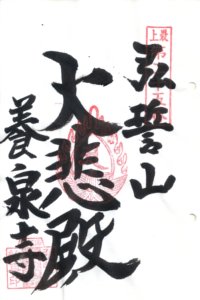 弘誓山
大悲殿
養泉寺